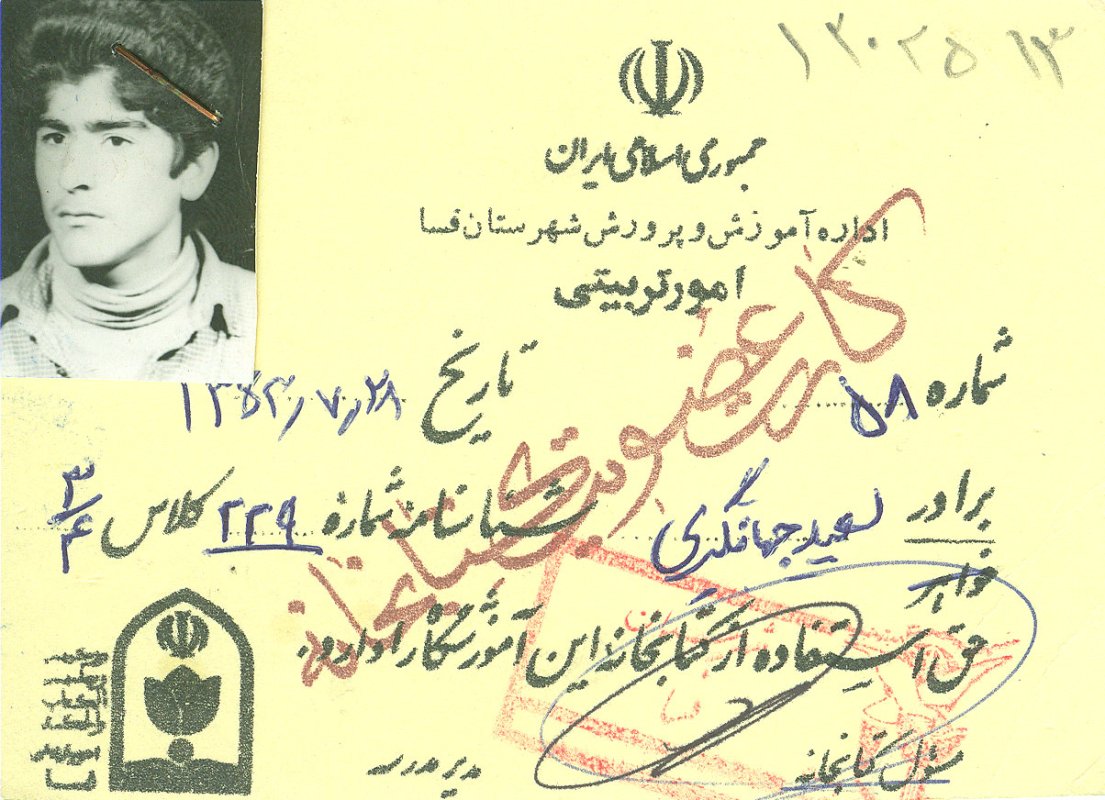 ۱۳۰۲۵۱۳
جمهوری اسلامی ایران
اداره آموزش و پرورش شهرستان فسا
امور تربیتی
کارت عضویت کتابخانه
شماره ۵۸ تاریخ ۱۳۶۳٫۷٫۲۸
برادر
خواهر
سعید جهانگردی شناسنامه شماره ۲۲۹ کلاس ۳/۴
حق استفاده از کتابخانه این آموزشگاه را دارد.
مسئول کتابخانه
مدیر مدرسه